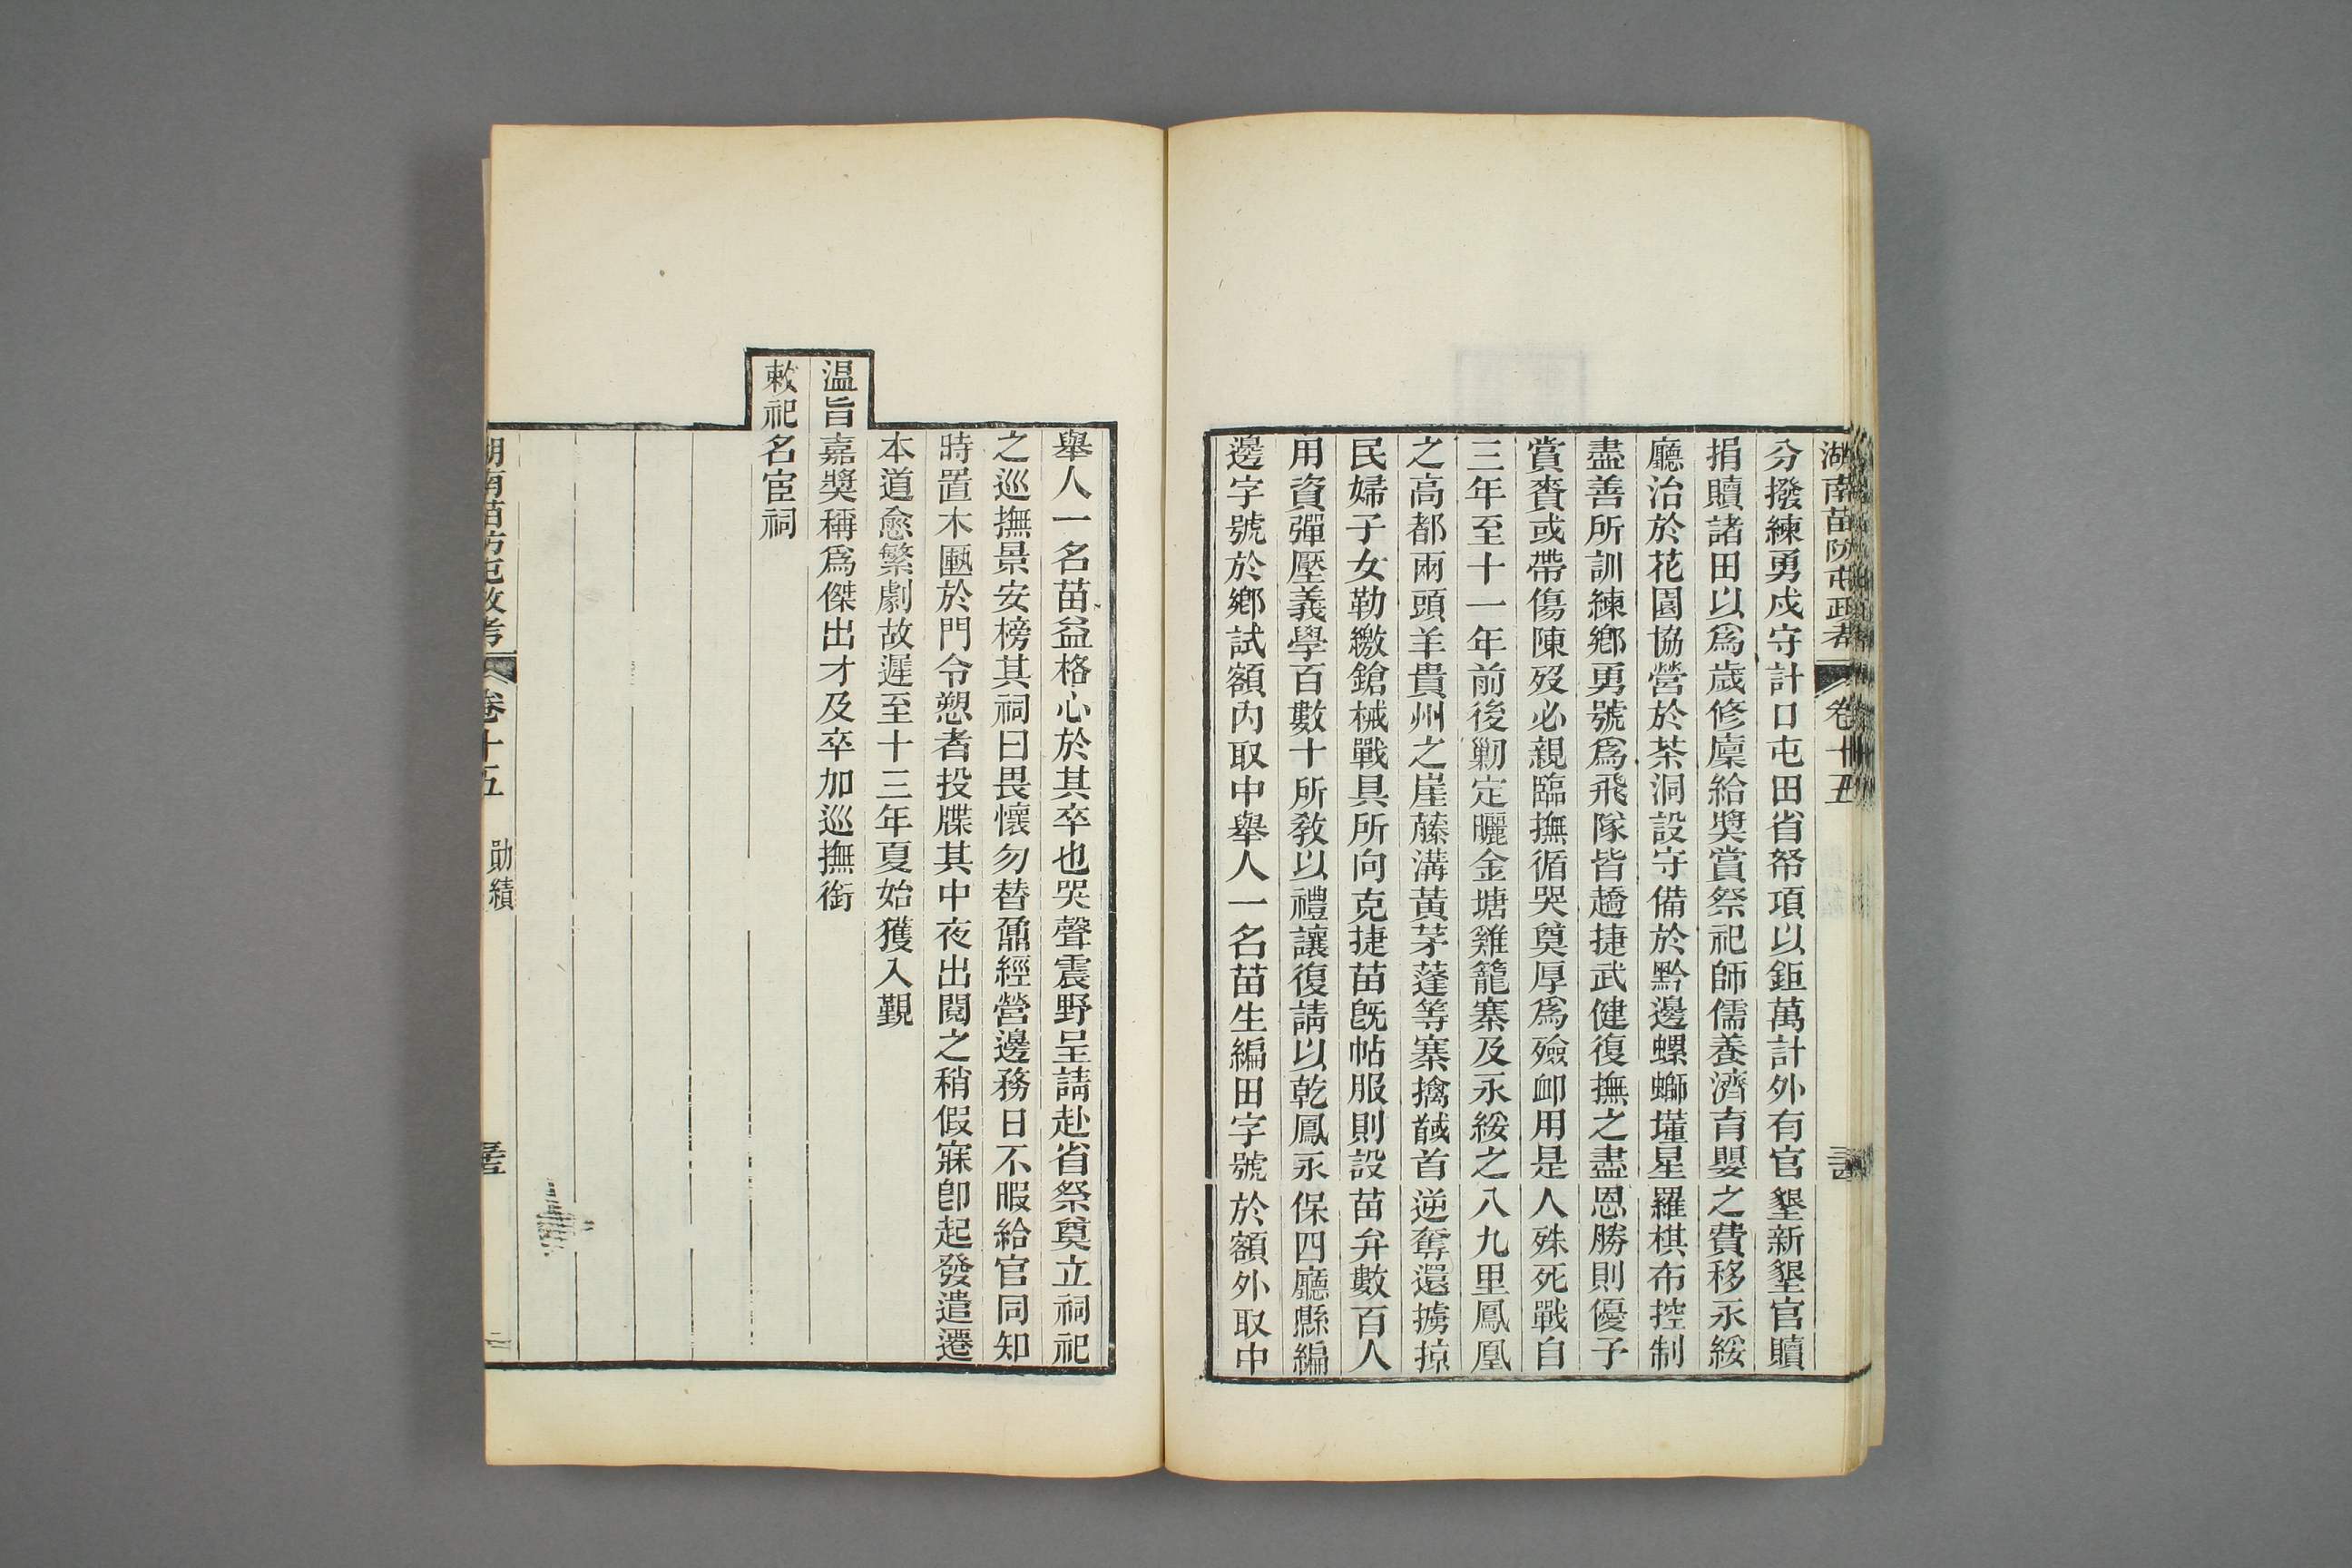 湖南苗防屯政考 卷十五
分撥練勇戍守計口屯田省帑項以鉅萬計外有官墾新墾官贖
捐贖諸田以爲歲修廩給奬賞祭祀師儒養濟育嬰之費移永綏
廳治於花園協營於茶洞設守備於黔邊螺螄墐星羅棋布控制
盡善所訓練鄉勇號爲飛隊皆趫捷武健復撫之盡恩勝則優予
賞賚或帶傷陳歿必親臨撫循哭奠厚爲殮卹用是人殊死戰自
三年至十一年前後勦定曬金塘雞籠寨及永綏之八九里鳳凰
之高都兩頭羊貴州之崖藤溝黃茅蓬等寨擒馘首逆奪還擄掠
民婦子女勒繳鎗械戰具所向克捷苗旣帖服則設苗弁數百人
用資彈壓義學百數十所敎以禮讓復請以乾鳳永保四廳縣編
邊字號於鄉試額內取中舉人一名苗生編田字號於額外取中
舉人一名苗益格心於其卒也哭聲震野呈請赴省祭奠立祠祀
之巡撫景安榜其祠曰畏懷勿替鼐經營邊務日不暇給官同知
時置木匭於門令愬者投牒其中夜出閱之稍假寐卽起發遣遷
本道愈繁劇故遲至十三年夏始獲入覲
温旨嘉奬稱爲傑出才及卒加巡撫銜
敕祀名宦祠
湖南苗防屯政考 卷十五 勛績